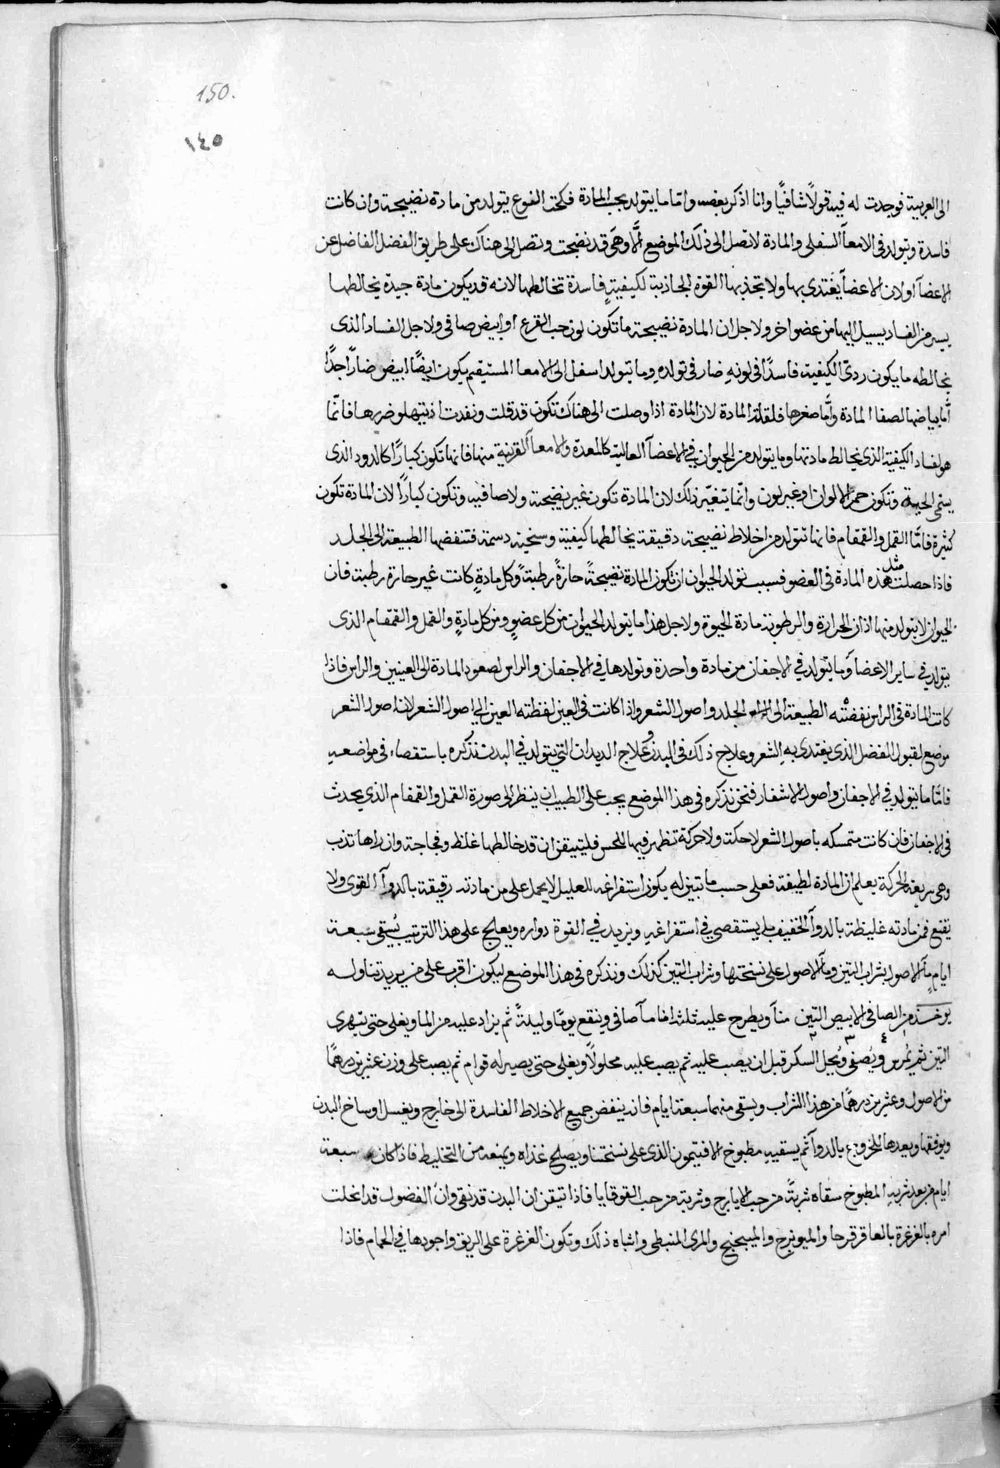 150.
١٤٥
الى العربية فوجدت له فيه قولًا شافيًا وانا اذكر بعضه واما ما يتولد بحب المادة فكحب القرع يتولد من مادة نضيجة وان كانت
فاسدة وتولد فى الامعآ السفلى والمادة لا تصل الى ذلك الموضع الَّا وهى قد نضجت وتصل الى هناك على طريق الفضل الفاضل عن
الاعضآ اولان الاعضآ يغتدى بها ولا تجذبها القوة الجاذبة لكيفية فاسدة تخالطها لانه قد يكون مادة جيدة يخالطها
يسير من الفساد يسيل اليها من عضو اخر ولاجل ان المادة نضيجة ما تكون لون حب القرع ابيض صافى ولاجل الفساد الذى
يخالطه ما يكون ردىّ الكيفية فاسدًا فى لونه ضار فى تولده وما يتولد اسفل الى الامعا المستقيم يكون ايضًا ابيض ضارًا جدًّا
أمّا بياضها لصفا المادة وأمّا صغرها فلقلة المادة لان المادة اذا وصلت الى هناك تكون قد قلت ونفدت اذيتها وضررها فانّما
هو لفساد الكيفية الذى يخالط مادتها وما يتولد من الحيوان فى الاعضآ العالية كالمعدة والامعآ القريبة منها فانها تكون كبارًا كالدود الذى
يسمى الحية وتكون حمر الالوان او غير لون وانما تتغير ذلك لان المادة تكون غير نضيجة ولا صافيه وتكون كبارًا لان المادة تكون
كثيرة فامّا القمل والقمقام فانها تتولد من اخلاط نضيجة دقيقة يخالطها كيفية وسخية دسمة فتنفضها الطبيعة الى الجلد
فاذا حصلت مثل هذه المادة فى العضو فسبب تولد الحيوان ان تكون المادة نضيجةً حارةً رطبةً وكل مادةٍ كانت غير حارة رطبة فان
الحيوان لا يتولد منها اذ ان الحرارة والرطوبة مادة الحيوة ولاجل هذا ما يتولد الحيوان من كل عضوٍ ومن كل مادةٍ والقمل والقمقام الذى
يتولد فى ساير الاعضآ وما يتولد فى الاجفان من مادة واحدة وتولدها فى الاجفان والراس لصعود المادة الى العينين والراس فاذا
كانت المادة فى الراس نفضته الطبيعة الى الجلد واصول الشعر واذا كانت فى العين لفظته العين الى اصول الشعر لان اصول الشعر
موضع لقبول الفضل الذى يغتدى به الشعر وعلاج ذلك فى البدن وعلاج الديدان التى يتولد فى البدن نذكره باستقصاء فى مواضعه
فامّا ما يتولد فى الاجفان واصول الاشفار فنحن نذكره فى هذا الموضع يجب على الطبيب ان ينظر الى صورة القمل والقمقام الذى يحدث
فى الاجفان فان كانت متمسكه باصول الشعر لا حكة ولا حركة تظهر فيها للحس فليتيقن ان قد خالطها غلظ وفجاجة وان راها تذب
وهى سريعة الحركة يعلم ان المادة لطيفة فعلى حسب ما تبين له يكون استفراغه للعليل لا يحمل على من مادته رقيقة بالدوآ القوى ولا
يقنع فمن مادته غليظة بالدوآ الخفيف بل يستقصى فى استفراغه ويزيد فى القوة دواره ويعالج على هذا الترتيب يُسقى سبعة
ايام مآ الاصول بشراب التين ومآ الاصول على نسختها وشراب التين كذلك ونذكره فى هذا الموضع ليكون اقرب على من يريد تناوله
يوخذ من الصافى الابيض التين منآ ويطرح عليه ثلثة امنا مآ صافى وينقع يومًا وليلةً ثم يزاد عليه من الما ويغلى حتى يتهرى
التين ثم يُمرس ويُصفى ويُحل السكر قبل ان يصب عليه ثم يصب عليه محلولًا ويغلى حتى يصير له قوام ثم يصب على وزن عشرين درهمًا
من الاصول وعشرين درهمًا من هذا الشراب ويسقى منهما سبعة ايام فانه ينفض جميع الاخلاط الفاسدة الى خارج ويغسل اوساخ البدن
ويوفقها ويعدها للخروج بالدوآ ثم يسقيه مطبوخ الافتيمون الذى على نسختنا ويصلح غذاه ويمنعه من التخليط فاذا كان سبعة
ايام من بعد شربه المطبوخ سقاه شربةً من حب الايارج وشربة من حب القوقايا فاذا تيقن ان البدن قد نقى وانّ الفضول قد انحلت
امره بالغرغرة بالعاقرقرحا والميويزج والميبختج والمرى النبطى واشباه ذلك وتكون الغرغرة على الريق واجودها فى الحمام فاذا